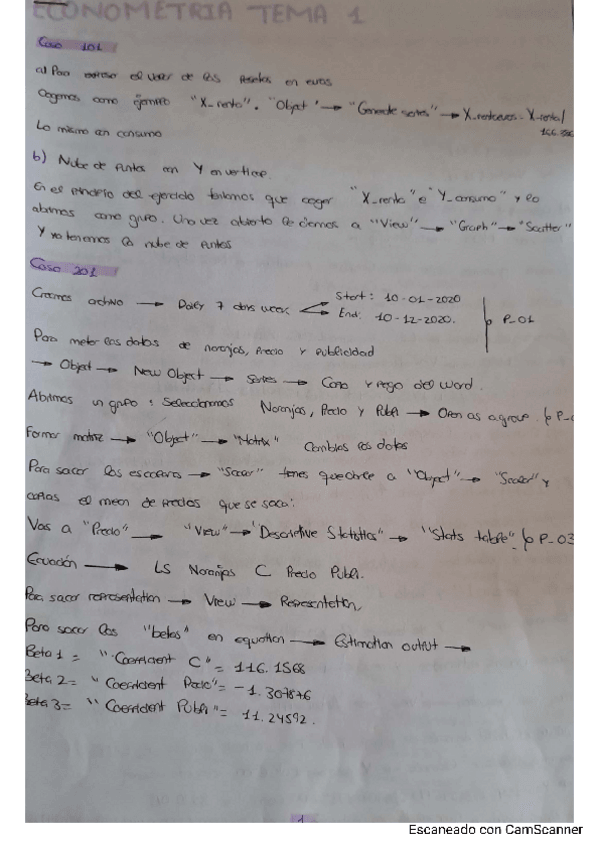 ECONOMETRIA TEMA 1
Caso 101
a) Para expresar el valor de las pesetas en euros
Cogemos como ejemplo "X_renta". "Object" → "Generate series" → X_renteuros = X_renta/
166.386
Lo mismo con consumo
b) Nube de puntos con Y en vertical.
En el principio del ejercicio tenemos que coger "X_renta" e "Y_consumo" y lo
abrimos como grupo. Una vez abierto le damos a "View" → "Graph" → "Scatter"
Y ya tenemos la nube de puntos
Caso 201
Creamos archivo → Daily 7 days week
Start: 10-01-2020
End: 10-12-2020.
P_01
Para meter los datos de naranjas, precio y publicidad
→ Object → New Object → Series → Copio y pego del word.
Abrimos un grupo: Seleccionamos Naranjas, Precio y Publi → Open as a group.
Formar matriz → "Object" → "Matrix" Cambias los datos
Para sacar los escalares → "Scalar" tienes que darle a "Object" → "Scalar" y
copias el mean de precios que se saca:
Vas a "Precio" → "View" → "Descriptive Statistics" → "Stats table" P_03
Ecuación → LS Naranjas C Precio Publi.
Para sacar representation → View → Representation
Para sacar las "betas" en equation → Estimation output →
Beta 1 = "Coefficient C" = 116.1568
Beta 2 = "Coefficient Precio" = -1.307876
Beta 3 = "Coefficient Publi" = 11.24592.
1
Escaneado con CamScanner